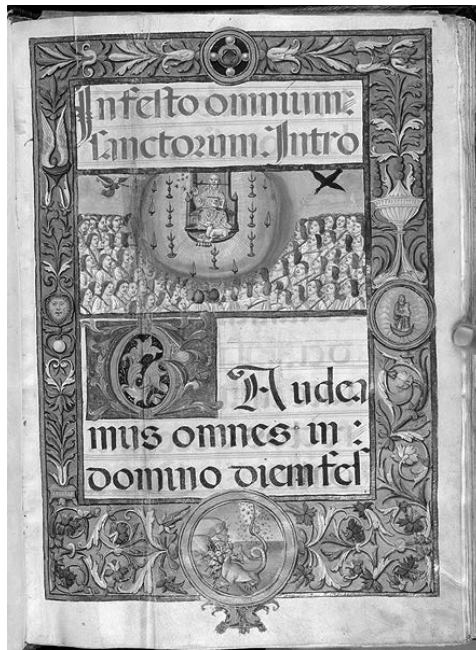 In festo omnium:
sanctorum: Intro
GAudea
mus omnes in:
domino diem fes